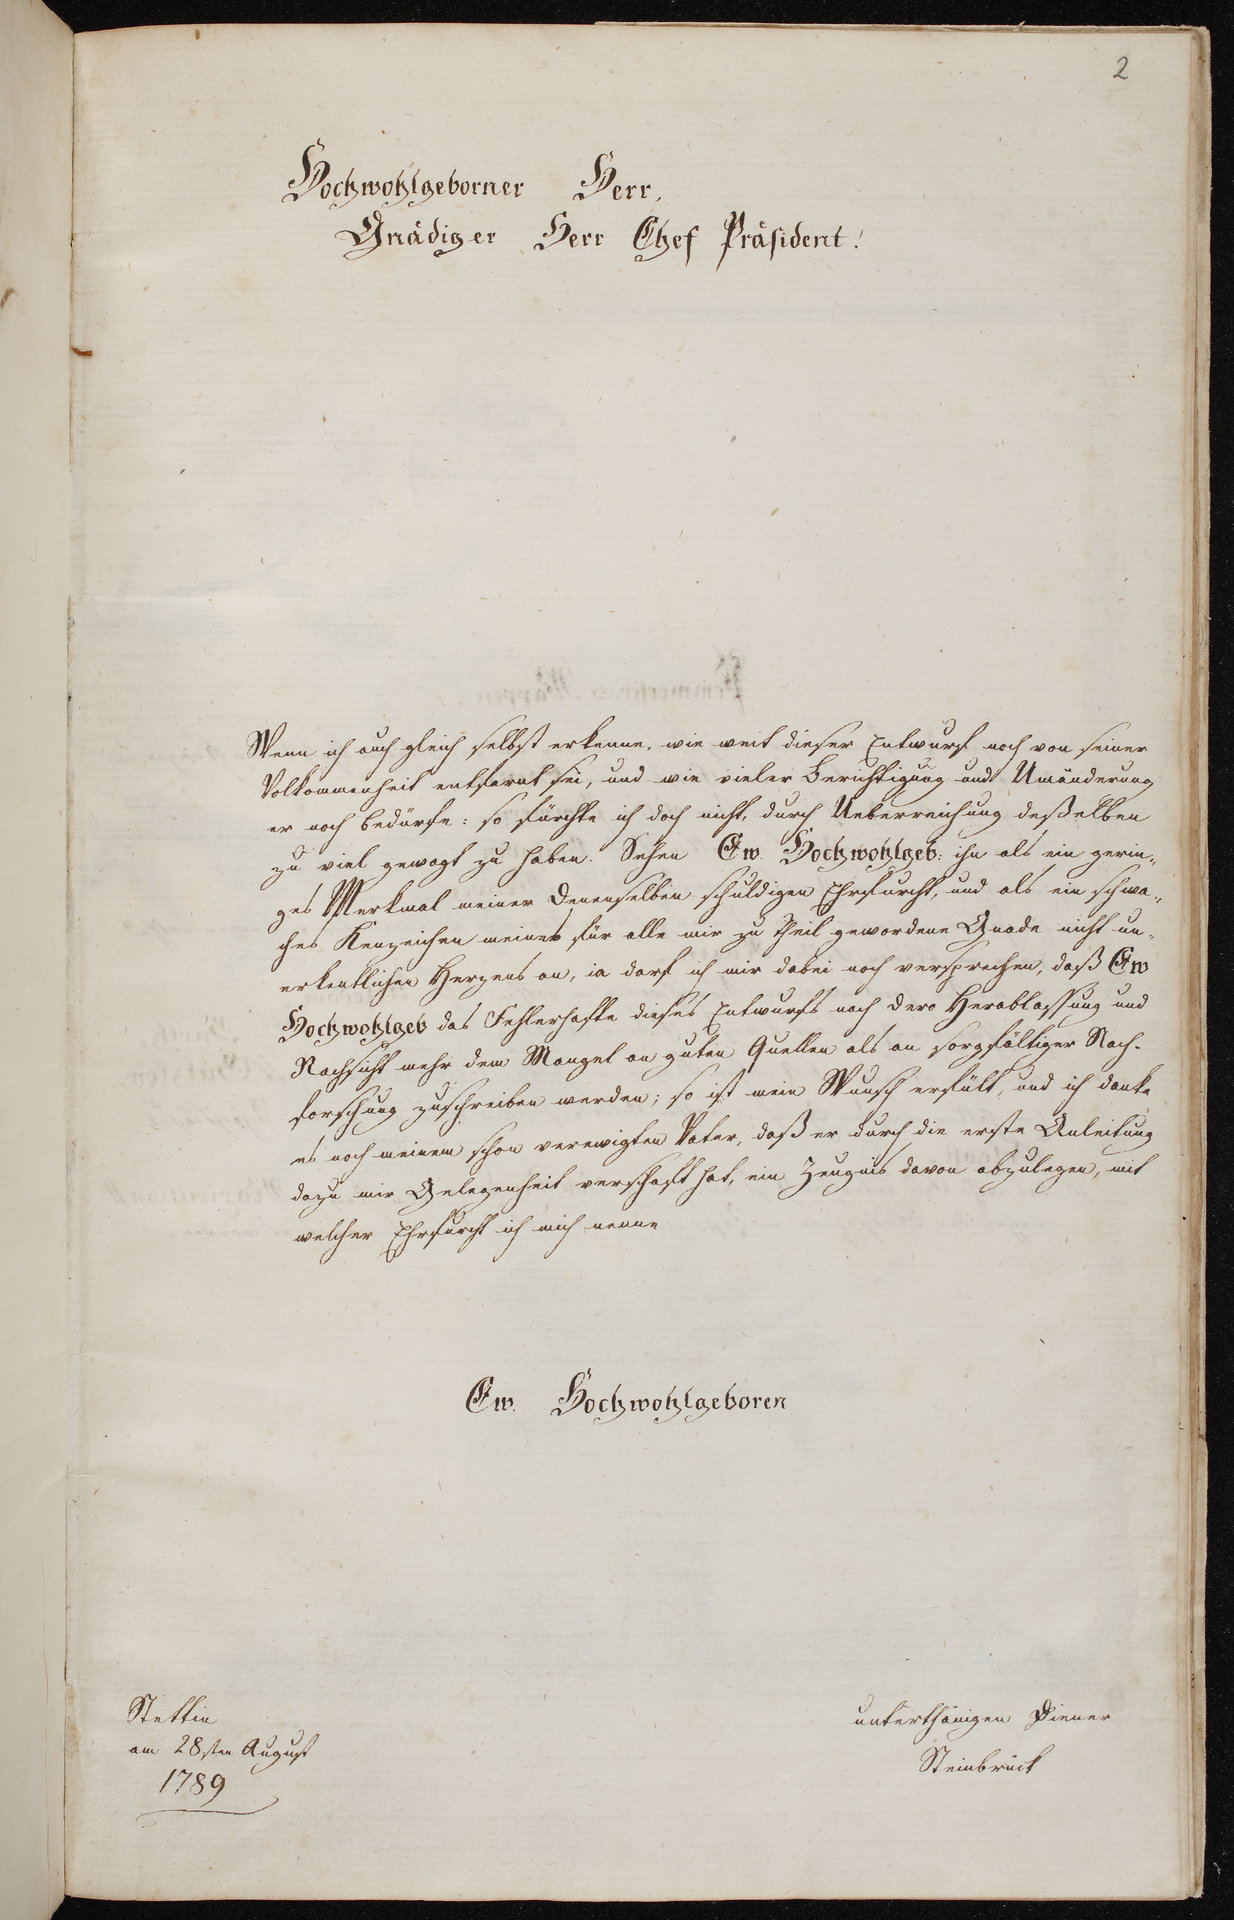 2
Hochwohlgeborner Herr,
Gnädiger Herr Chef Präsident!
Wenn ich auch gleich selbst erkenne, wie weit dieser Entwurf noch von seiner
Volkommenheit entfernt sei, und wie vieler Berichtigung und Umänderung
er noch bedürfe: so fürchte ich doch nicht, durch Ueberreichung deßelben
zu viel gewagt zu haben. Sehen Ew. Hochwohlgeb: ihn als ein gerin„
ges Merkmal meiner Denenselben schuldigen Ehrfurcht, und als ein schwa„
ches Kenzeichen meines für alle mir zu Theil gewordene Gnade nicht un„
erkentlichen Herzens an, ia darf ich mir dabei noch versprechen, daß Ew
Hochwohlgeb das Fehlerhafte dieses Entwurfs nach Dero Herablassung und
Nachsicht mehr dem Mangel an guten Quellen als an sorgfältiger Nach-
forschung zuschreiben werden; so ist mein Wunsch erfült, und ich danke
es noch meinem schon verewigten Vater, daß er durch die erste Anleitung
dazu mir Gelegenheit verschaft hat, ein Zeugnis davon abzulegen, mit
welcher Ehrfurcht ich mich nenne
Ew. Hochwohlgeboren
Stettin
am 28sten August
1789
unterthänigen Diener
Steinbrück